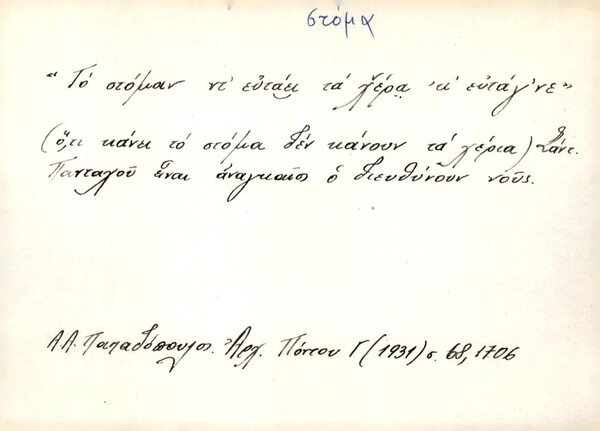 στόμα
"Τό στόμαν ντ' εὐτάει τά χέρα̤ 'κ' εὐτάγ'νε"
(ὅ,τι κάνει τό στόμα δέν κάνουν τά χέρια) Σάντ.
Πανταχοῦ εἶναι ἀναγκαῖος ὁ διευθύνουν νοῦς.
Α.Α. Παπαδόπουλος. Ἀρχ. Πόντου Γ (1931) σ. 68, 1706